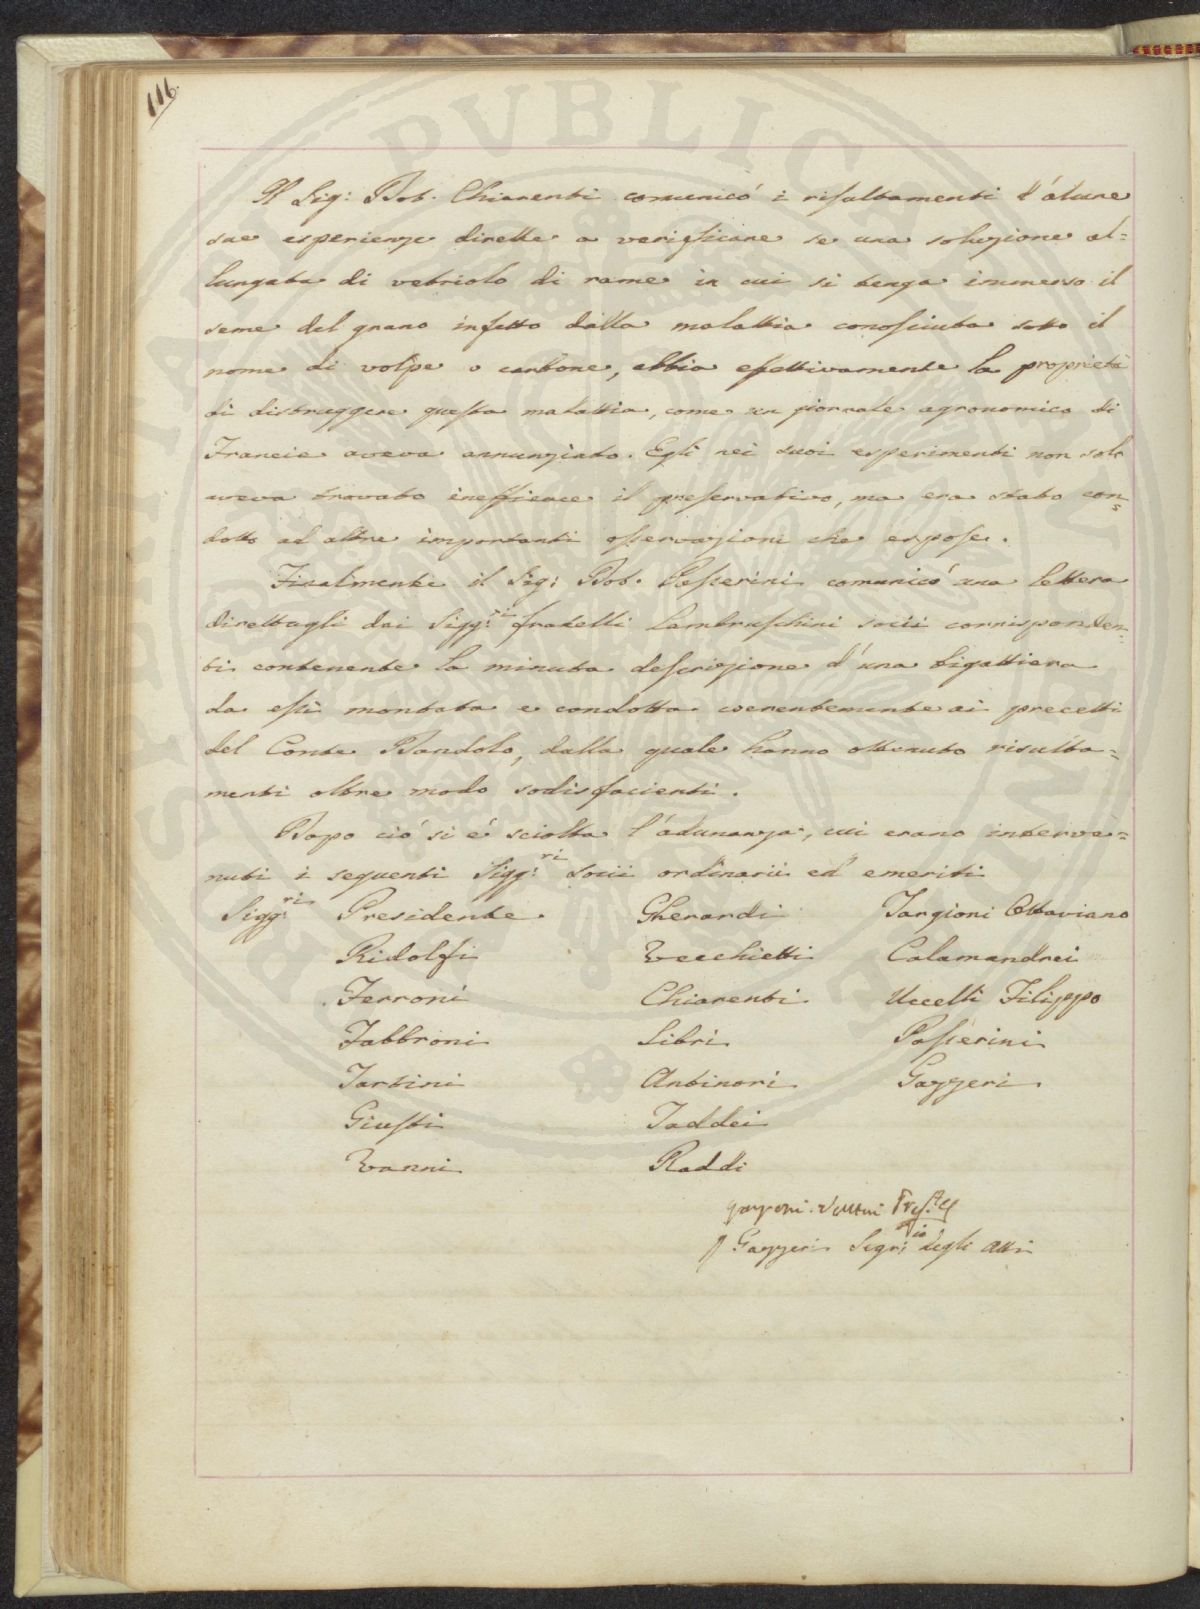 116.
Il Sig: Dot. Chiarenti comunicò i risultamenti d'alcune
sue esperienze dirette a verificare se una soluzione al=
lungata di vetriolo di rame in cui si tenga immerso il
seme del grano infetto dalla malattia conosciuta sotto il
nome di volpe o carbone, abbia effettivamente la proprietà
di distruggere questa malattia, come un giornale agronomico di
Francia aveva annunziato. Egli nei suoi esperimenti non solo
aveva trovato inefficace il preservativo, ma era stato con=
dotto ad altre importanti osservazioni che espose.
Finalmente il Sig: Dot. Passerini comunicò una lettera
direttagli dai Sigg:ri fratelli Lambruschini socii corrisponden=
ti contenente la minuta descrizione d'una bigattiera
da essi montata e condotta coerentemente ai precetti
del Conte Dandolo, dalla quale hanno ottenuto risulta=
menti oltre modo sodisfacienti.
Dopo ciò si è sciolta l'adunanza, cui erano interve=
nuti i seguenti Sigg:ri socii ordinarii ed emeriti
Sigg:ri Presidente Gherardi Targioni Ottaviano
Ridolfi Vecchietti Calamandrei
Ferroni Chiarenti Uccelli Filippo
Fabbroni Libri Passerini
Tartini Antinori Gazzeri
Giusti Taddei
Vanni Raddi
Pres.te
Gazzeri Segr:io degli Atti